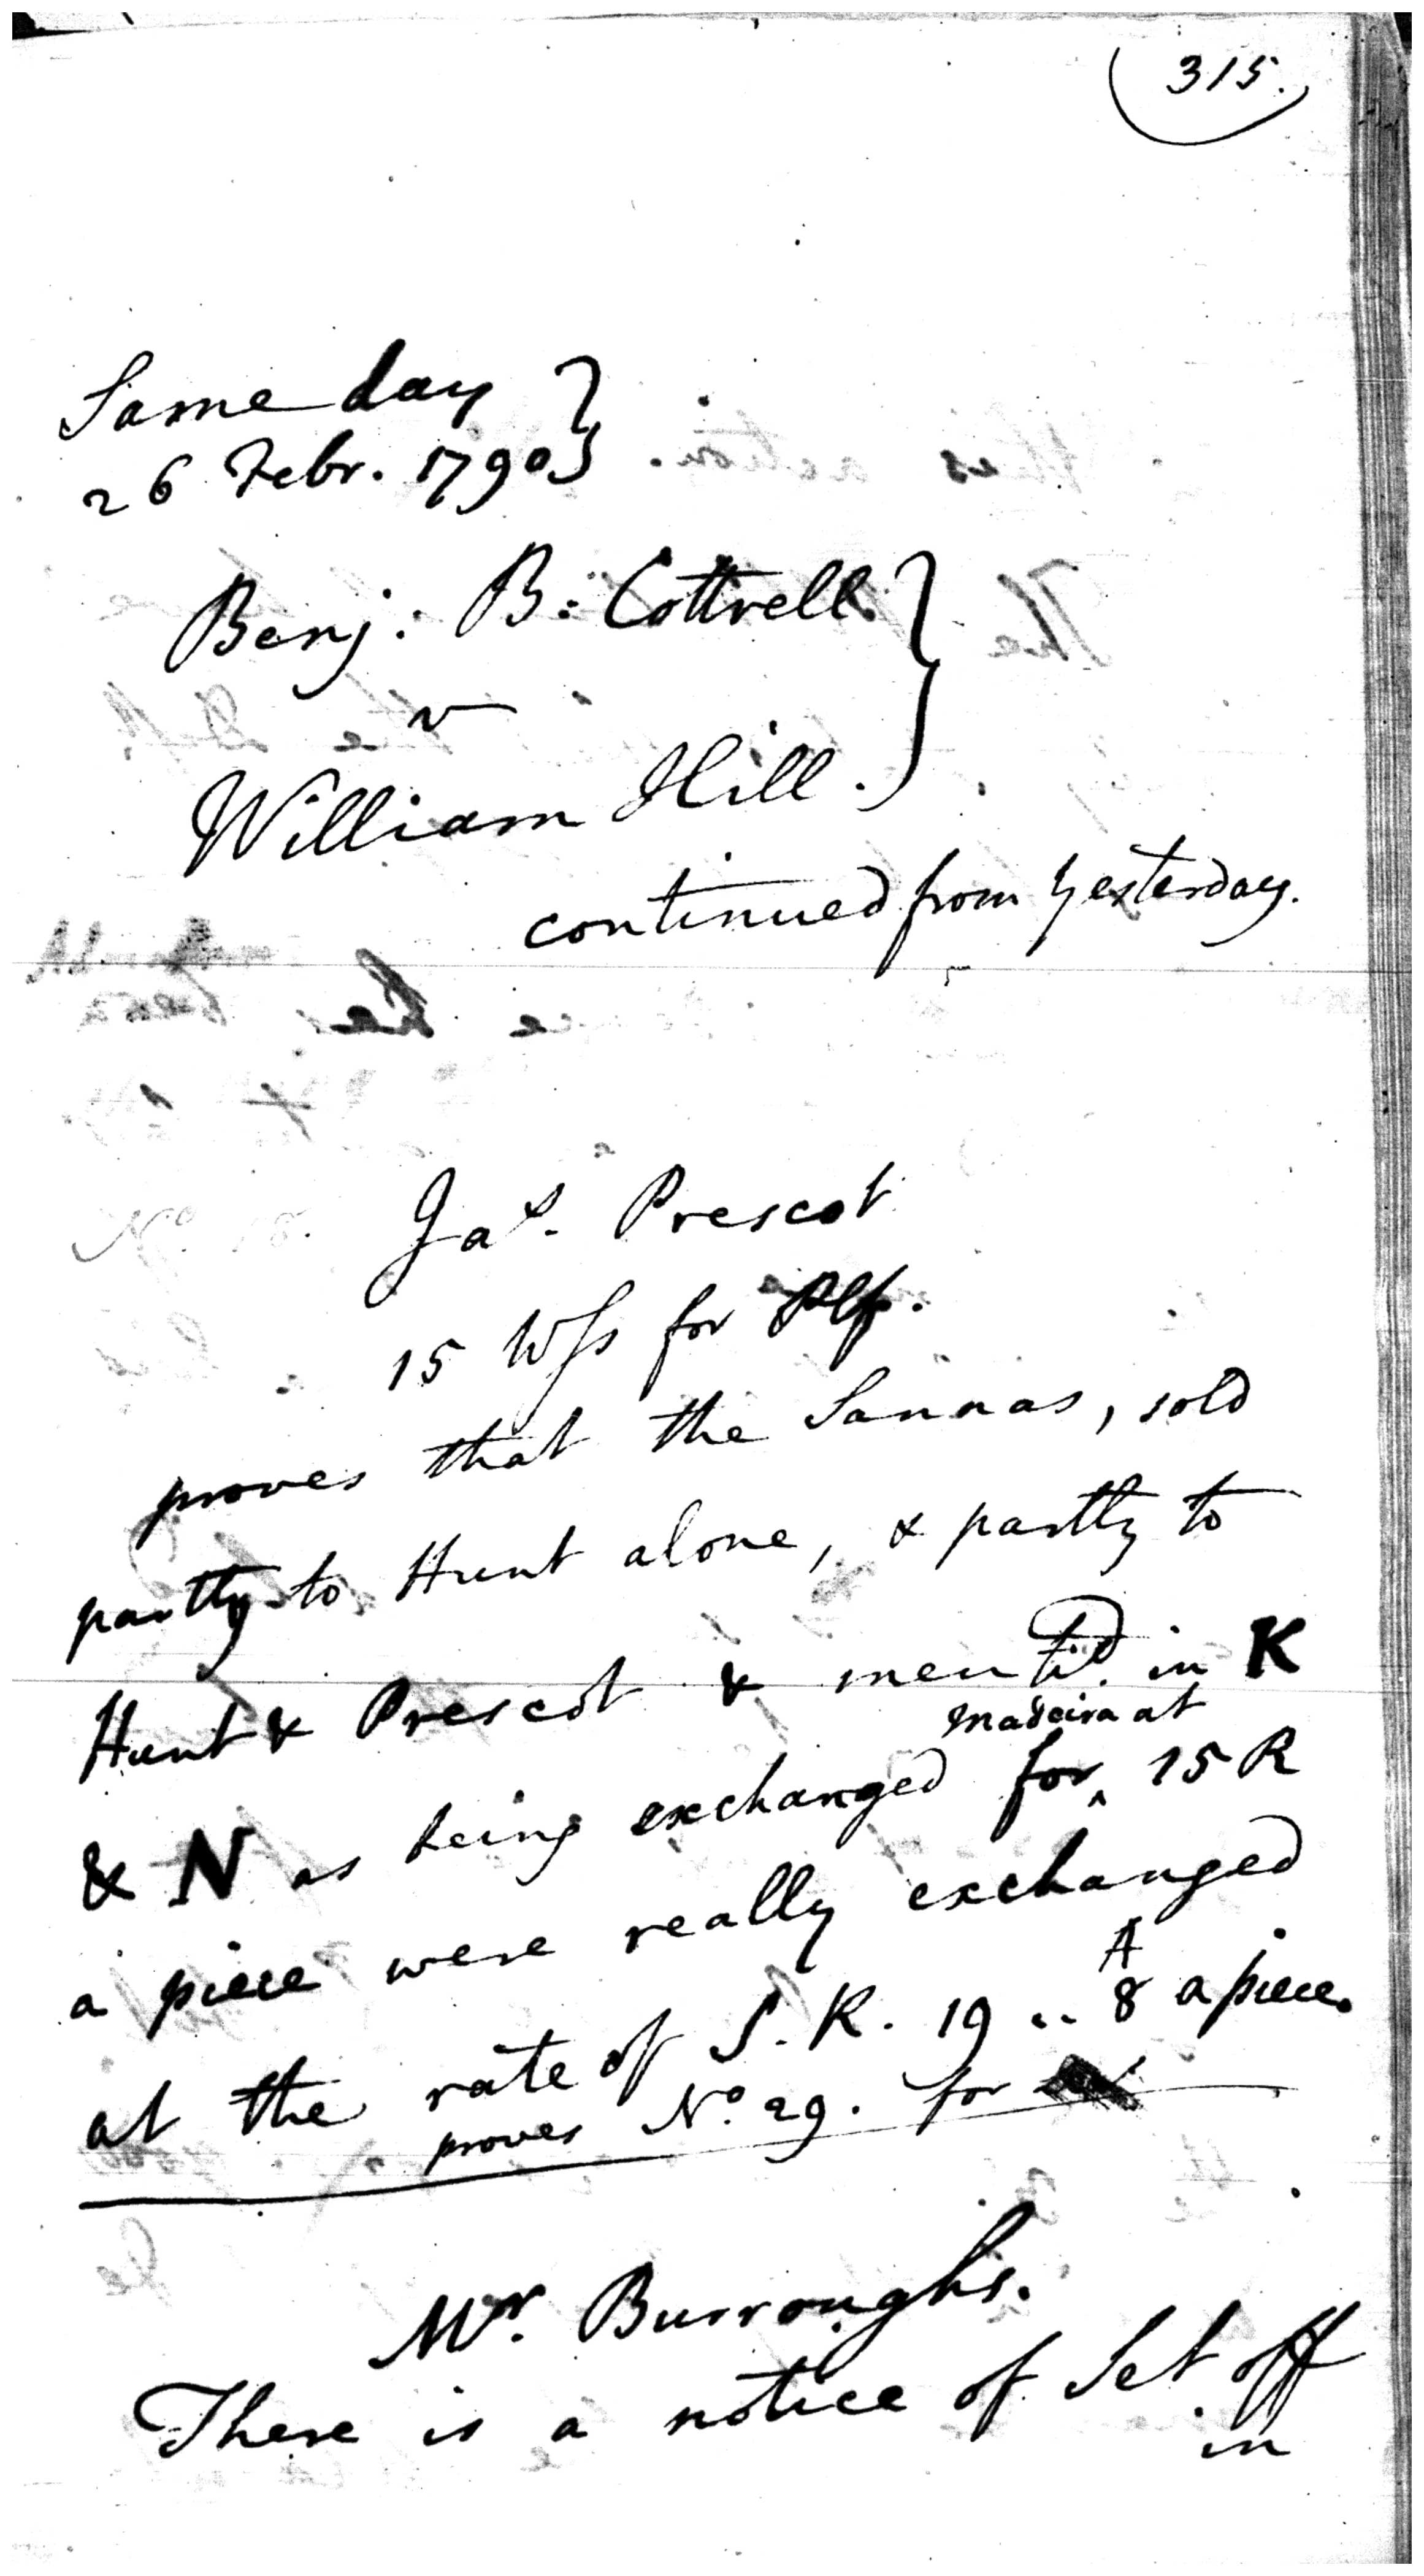 315.
Same day
26 Febr. 1790
Benj: B: Cottrell
v
William Hill.
continued from yesterday.
Jas. Prescot
15 Wss for Plf.
proves that the Sannas, sold
partly to Hunt alone, & partly to
Hunt & Prescot & mentd. in K
madeira at
& N as being exchanged for ^ 15 R
a piece were really exchanged
A
at the rate of S. R. 19 .. 8 a piece.
proves No. 29. for
Mr. Burroughs.
There is a notice of Set off
in